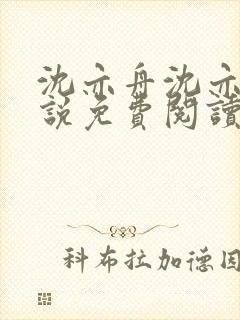 沈亦舟沈亦
說免費閱讀
科布拉加德因